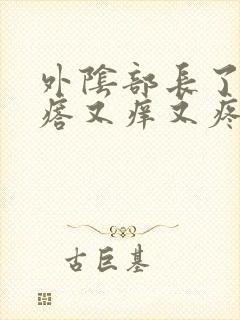 外陰部長了
瘩又痒又疼
古巨基